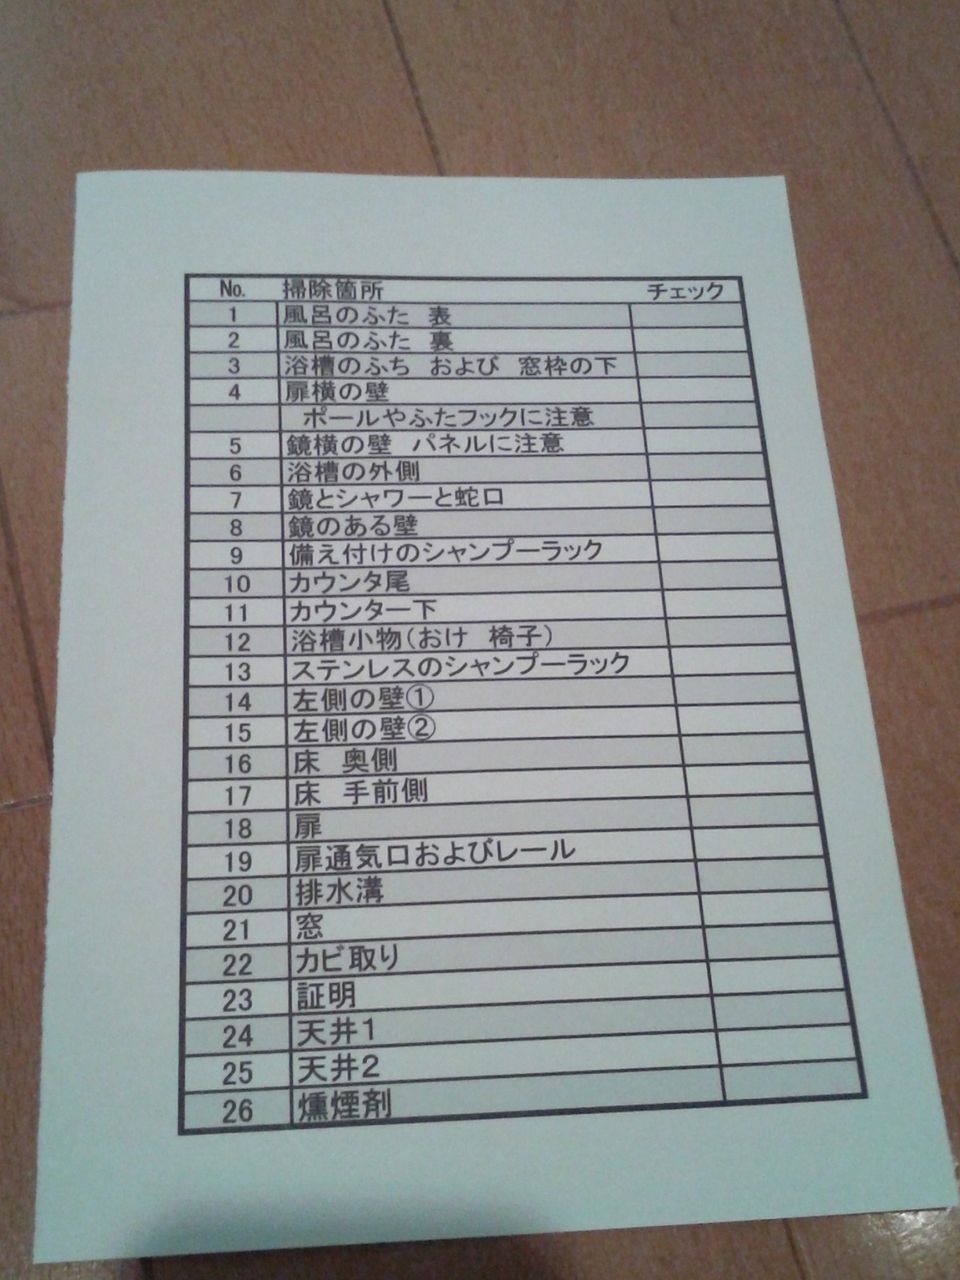 No. 掃除箇所 チェック
1 風呂のふた 表
2 風呂のふた 裏
3 浴槽のふち および 窓枠の下
4 扉横の壁
ポールやふたフックに注意
5 鏡横の壁 パネルに注意
6 浴槽の外側
7 鏡とシャワーと蛇口
8 鏡のある壁
9 備え付けのシャンプーラック
10 カウンタ尾
11 カウンター下
12 浴槽小物(おけ 椅子)
13 ステンレスのシャンプーラック
14 左側の壁①
15 左側の壁②
16 床 奥側
17 床 手前側
18 扉
19 扉通気口およびレール
20 排水溝
21 窓
22 カビ取り
23 証明
24 天井1
25 天井2
26 燻煙剤